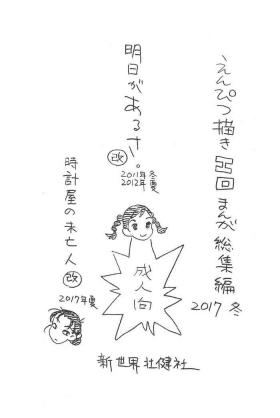 えんぴつ描き凹凸まんが総集編
2017 冬
明日があるさ。
改
2011年 冬
2012年 夏
時計屋の未亡人
改
2017年夏
成人向
新世界壮健社